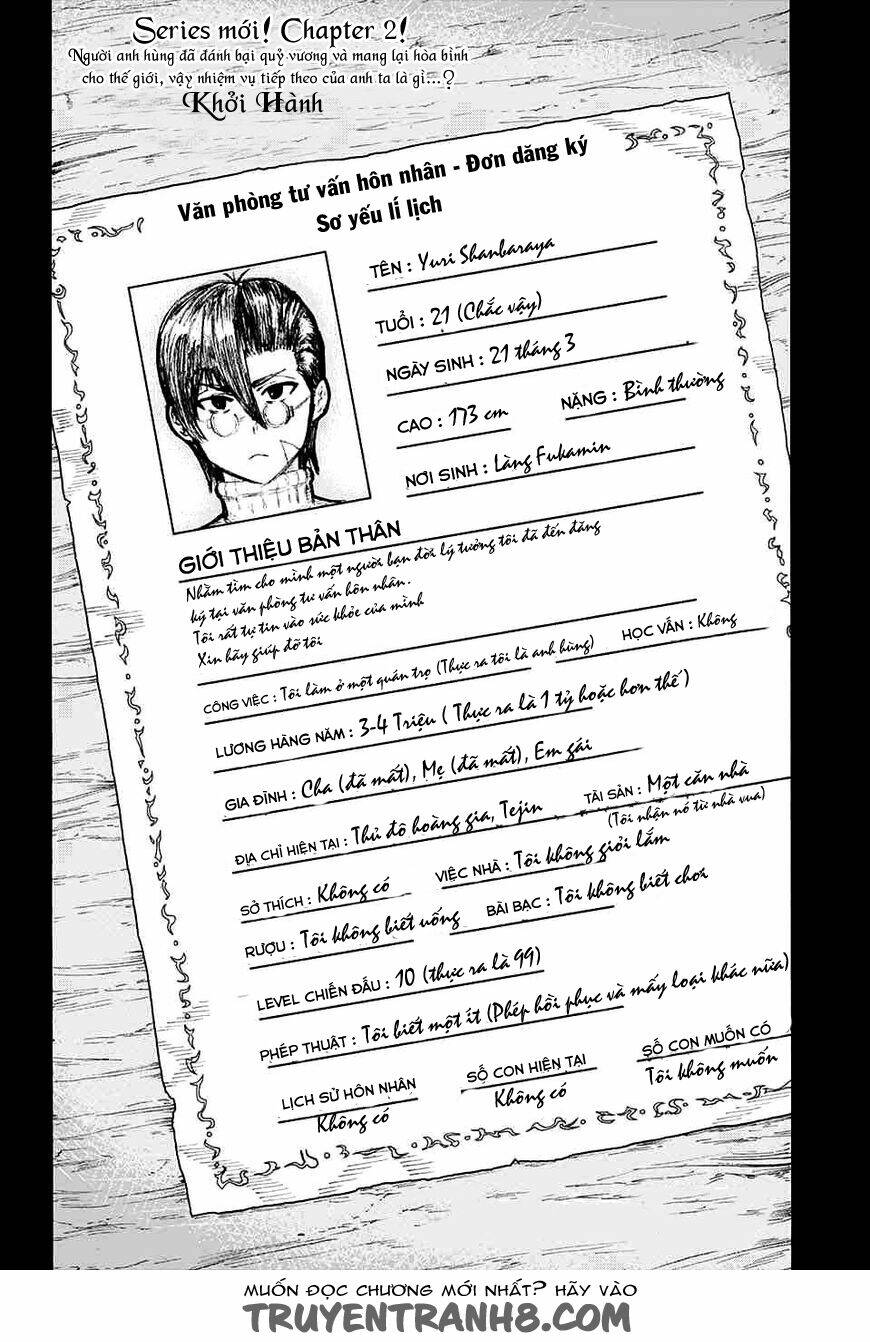 Series mới! Chapter 2!
Người anh hùng đã đánh bại quỷ vương và mang lại hòa bình
cho thế giới, vậy nhiệm vụ tiếp theo của anh ta là gì...?
Khởi Hành
Văn phòng tư vấn hôn nhân - Đơn đăng ký
Sơ yếu lí lịch
TÊN : Yuri Shanbaraya
TUỔI : 21 (Chắc vậy)
NGÀY SINH : 21 tháng 3
CAO : 173 cm NẶNG : Bình thường
NƠI SINH : Làng Fukamin
GIỚI THIỆU BẢN THÂN
Nhằm tìm cho mình một người bạn đời lý tưởng tôi đã đến đăng
ký tại văn phòng tư vấn hôn nhân.
Tôi rất tự tin vào sức khỏe của mình
Xin hãy giúp đỡ tôi
CÔNG VIỆC : Tôi làm ở một quán trọ (Thực ra tôi là anh hùng) HỌC VẤN : Không
LƯƠNG HÀNG NĂM : 3-4 Triệu ( Thực ra là 1 tỷ hoặc hơn thế )
GIA ĐÌNH : Cha (đã mất), Mẹ (đã mất), Em gái
ĐỊA CHỈ HIỆN TẠI : Thủ đô hoàng gia, Tejin TÀI SẢN : Một căn nhà
(Tôi nhận nó từ nhà vua)
SỞ THÍCH : Không có VIỆC NHÀ : Tôi không giỏi lắm
RƯỢU : Tôi không biết uống BÀI BẠC : Tôi không biết chơi
LEVEL CHIẾN ĐẤU : 10 (thực ra là 99)
PHÉP THUẬT : Tôi biết một ít (Phép hồi phục và mấy loại khác nữa)
LỊCH SỬ HÔN NHÂN SỐ CON HIỆN TẠI SỐ CON MUỐN CÓ
Không có Không có Tôi không muốn
MUỐN ĐỌC CHƯƠNG MỚI NHẤT? HÃY VÀO
TRUYENTRANH8.COM